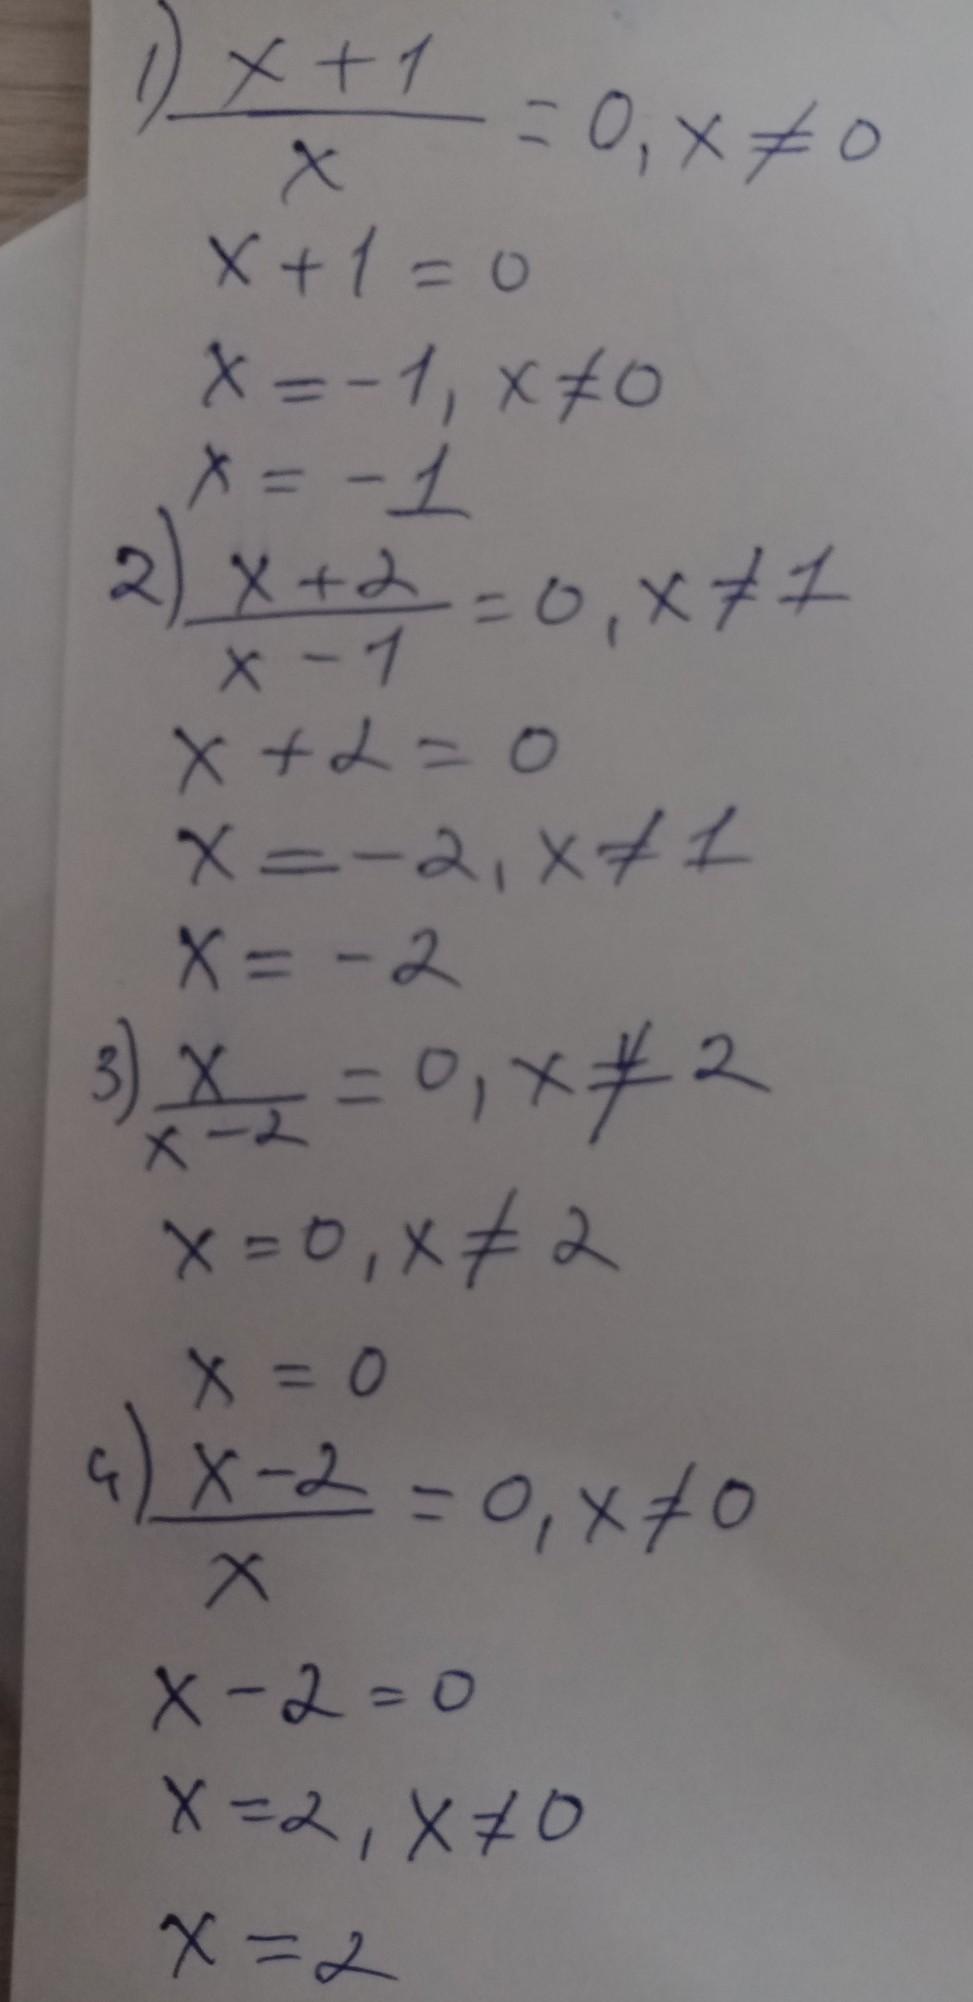 1) x+1/x = 0, x≠0
x+1=0
x=-1, x≠0
x=-1
2) x+2/x-1 = 0, x≠1
x+2=0
x=-2, x≠1
x=-2
3) x/x-2 = 0, x≠2
x=0, x≠2
x=0
4) x-2/x = 0, x≠0
x-2=0
x=2, x≠0
x=2